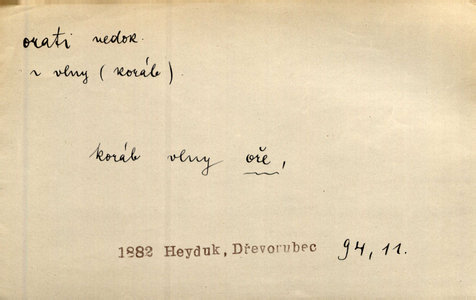 orati nedok.
~ vlny (koráb).
koráb vlny oře,
1882 Heyduk, Dřevorubec 94, 11.